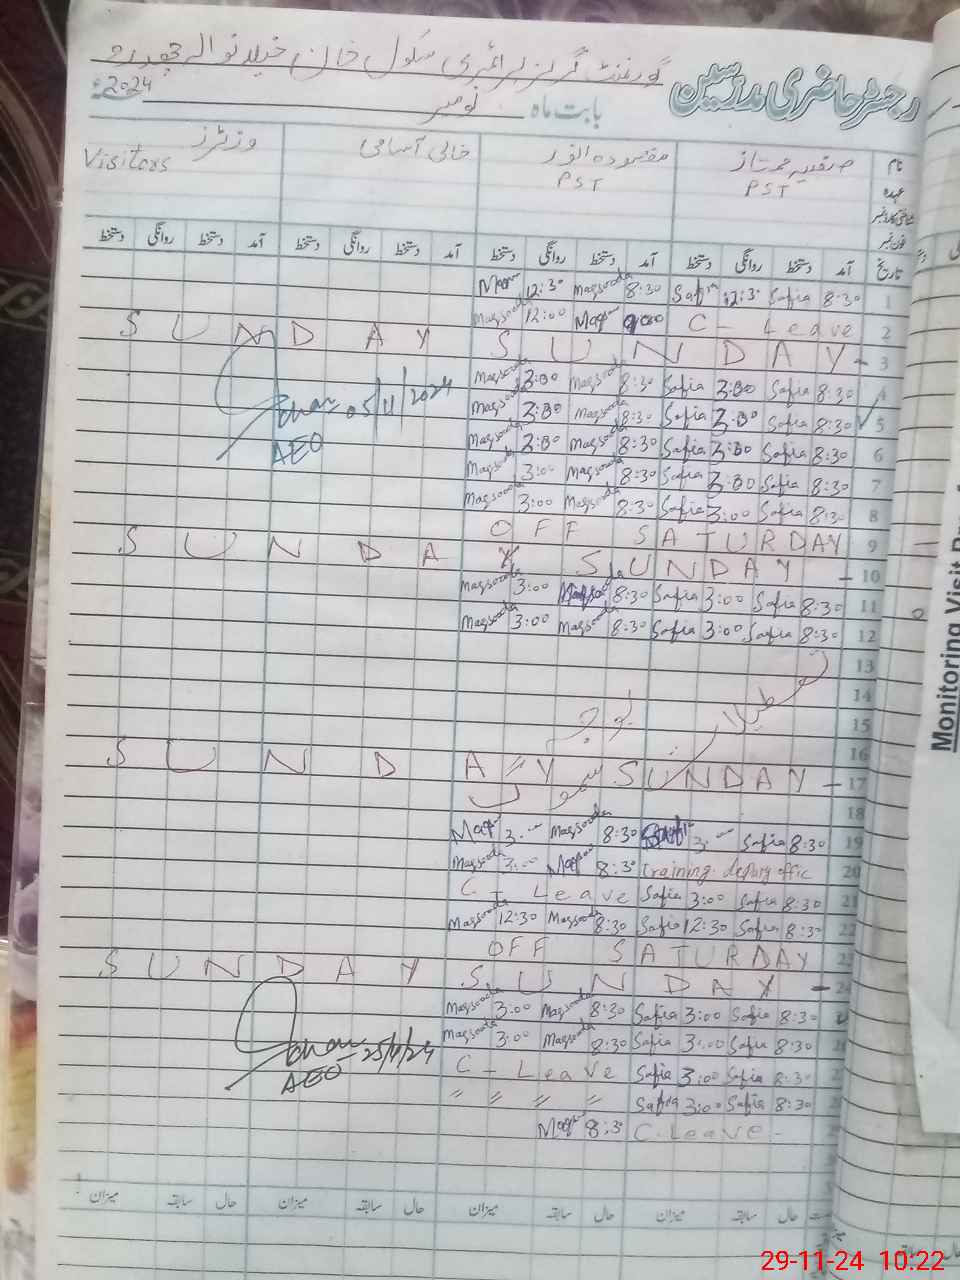 رجسٹر حاضری مدرسین
گورنمنٹ گرلز پرائمری سکول خان
بابت ماہ نومبر 2024ء
نام صفیہ ممتاز مقصودہ انور خالی آسامی وزٹرز
عہدہ PST PST Visitors
شناختی کارڈ نمبر
فون نمبر
تاریخ آمد دستخط روانگی دستخط آمد دستخط روانگی دستخط آمد دستخط روانگی دستخط آمد دستخط روانگی دستخط
1 8:30 Safia 12:30 Safia 8:30 Maqsooda 12:30
2 C - Leave 12:00 Maqsooda
3 SUNDAY SUNDAY
4 8:30 Safia 3:00 Safia 8:30 Maqsooda 3:00 Maqsooda
5 8:30 Safia 3:00 Safia 8:30 Maqsooda 3:00 Maqsooda
05/11/2024
AEO
6 8:30 Safia 3:00 Safia 8:30 Maqsooda 3:00 Maqsooda
7 8:30 Safia 3:00 Safia 8:30 Maqsooda 3:00 Maqsooda
8 8:30 Safia 3:00 Safia 8:30 Maqsooda 3:00 Maqsooda
9 OFF SATURDAY
10 SUNDAY SUNDAY
11 8:30 Safia 3:00 Safia 8:30 3:00 Maqsooda
12 8:30 Safia 3:00 Safia 8:30 Maqsooda 3:00 Maqsooda
13
14 تعطیلات بوجہ سموگ
15
16
17 SUNDAY SUNDAY
18
19 8:30 Safia 3:00 8:30 Maqsooda 3:00
20 Training 8:30 3:00 Maqsooda
21 8:30 Safia 3:00 Safia C - Leave
22 8:30 Safia 12:30 Safia 8:30 Maqsooda 12:30 Maqsooda
23 OFF SATURDAY
24 SUNDAY SUNDAY
8:30 Safia 3:00 Safia 8:30 Maqsooda 3:00 Maqsooda
8:30 Safia 3:00 Safia 8:30 Maqsooda 3:00 Maqsooda
25/11/24
AEO
8:30 Safia 3:00 Safia C - Leave
8:30 Safia 3:00 Safia 〃 〃 〃 〃
C - Leave - 8:30
حال سابقہ میزان حال سابقہ میزان حال سابقہ میزان حال سابقہ میزان
Monitoring Visit
29-11-24 10:22